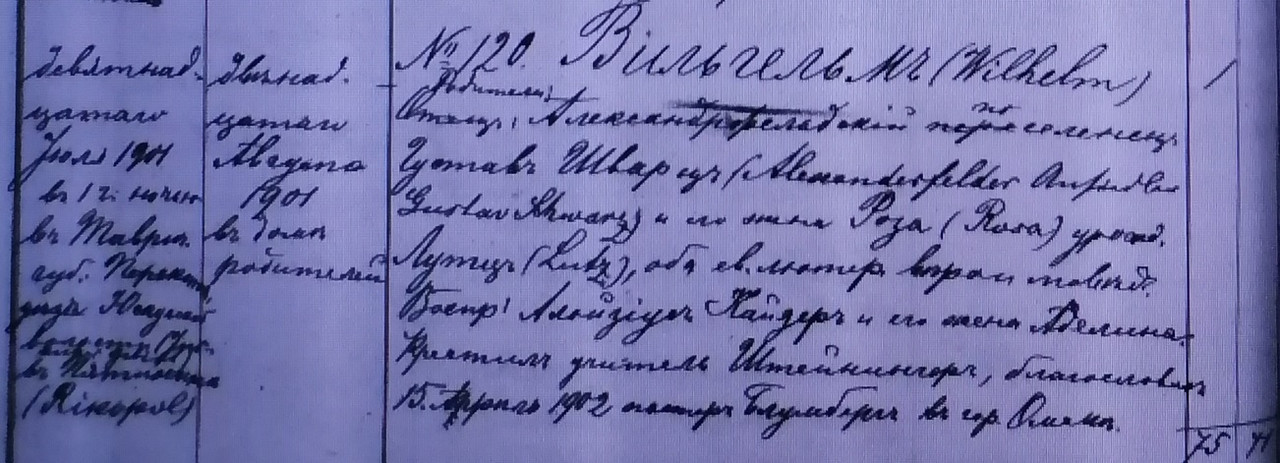 девятнад-
цатаго
Іюля 1901
въ 1 ч. ночи
въ Таврич.
губ. Перекоп.
(Rikopol)
двѣнад-
цатаго
Августа
1901
въ домѣ
родителей
№ 120. Вильгельмъ (Wilhelm)
Родители:
Отецъ: Александрфельдскій поселенецъ
Густавъ Шварцъ (Alexanderfelder Ansiedler
Gustav Schwarz) и его жена Роза (Rosa) урожд.
Лутцъ (Lutz), оба ев. лютер. вѣроисповѣд.
Воспр: Алойзіусъ Кайзеръ и его жена Аделина.
Крестилъ учитель Штейнингеръ, благословилъ
15. Апрѣля 1902 пасторъ Блумбергъ въ гор. Омскѣ.
1
75